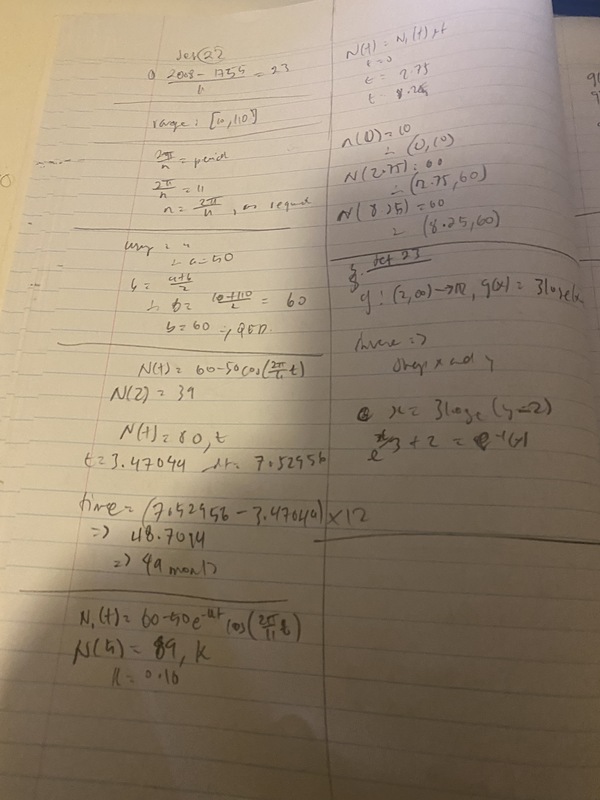 2008 - 1755 = 23
11
range: [10,110]
2π/n = period
2π/n = 11
n = 2π/11, as requd
∴ a=50
b = a+b/2
∴ b = 10+110/2 = 60
b=60 =, QED.
N(t)= 60-50cos(2π/11 t)
N(2) = 39
N(t)=80, t
t=3.47044 t= 7.52956
time= (7.52956 - 3.47044) × 12
=> 48.7094
=> 49 month
N,(t)=60-50e cos(2π/11 t)
N(5) = 89, k
k= 0.10
N(t) = N,(t) pt
t=0
t = 2.75
t= 8.25
n(0)=10
∴ (0,10)
N(2.75)=60
∴ (2.75,60)
N(8.25) =60
∴ (8.25,60)
23
g: (2,∞)→R, g(x)= 3loge(x
Inverse =>
Swap x and y
x= 3loge (y-2)
e^x/3 + 2 = g^-1(x)